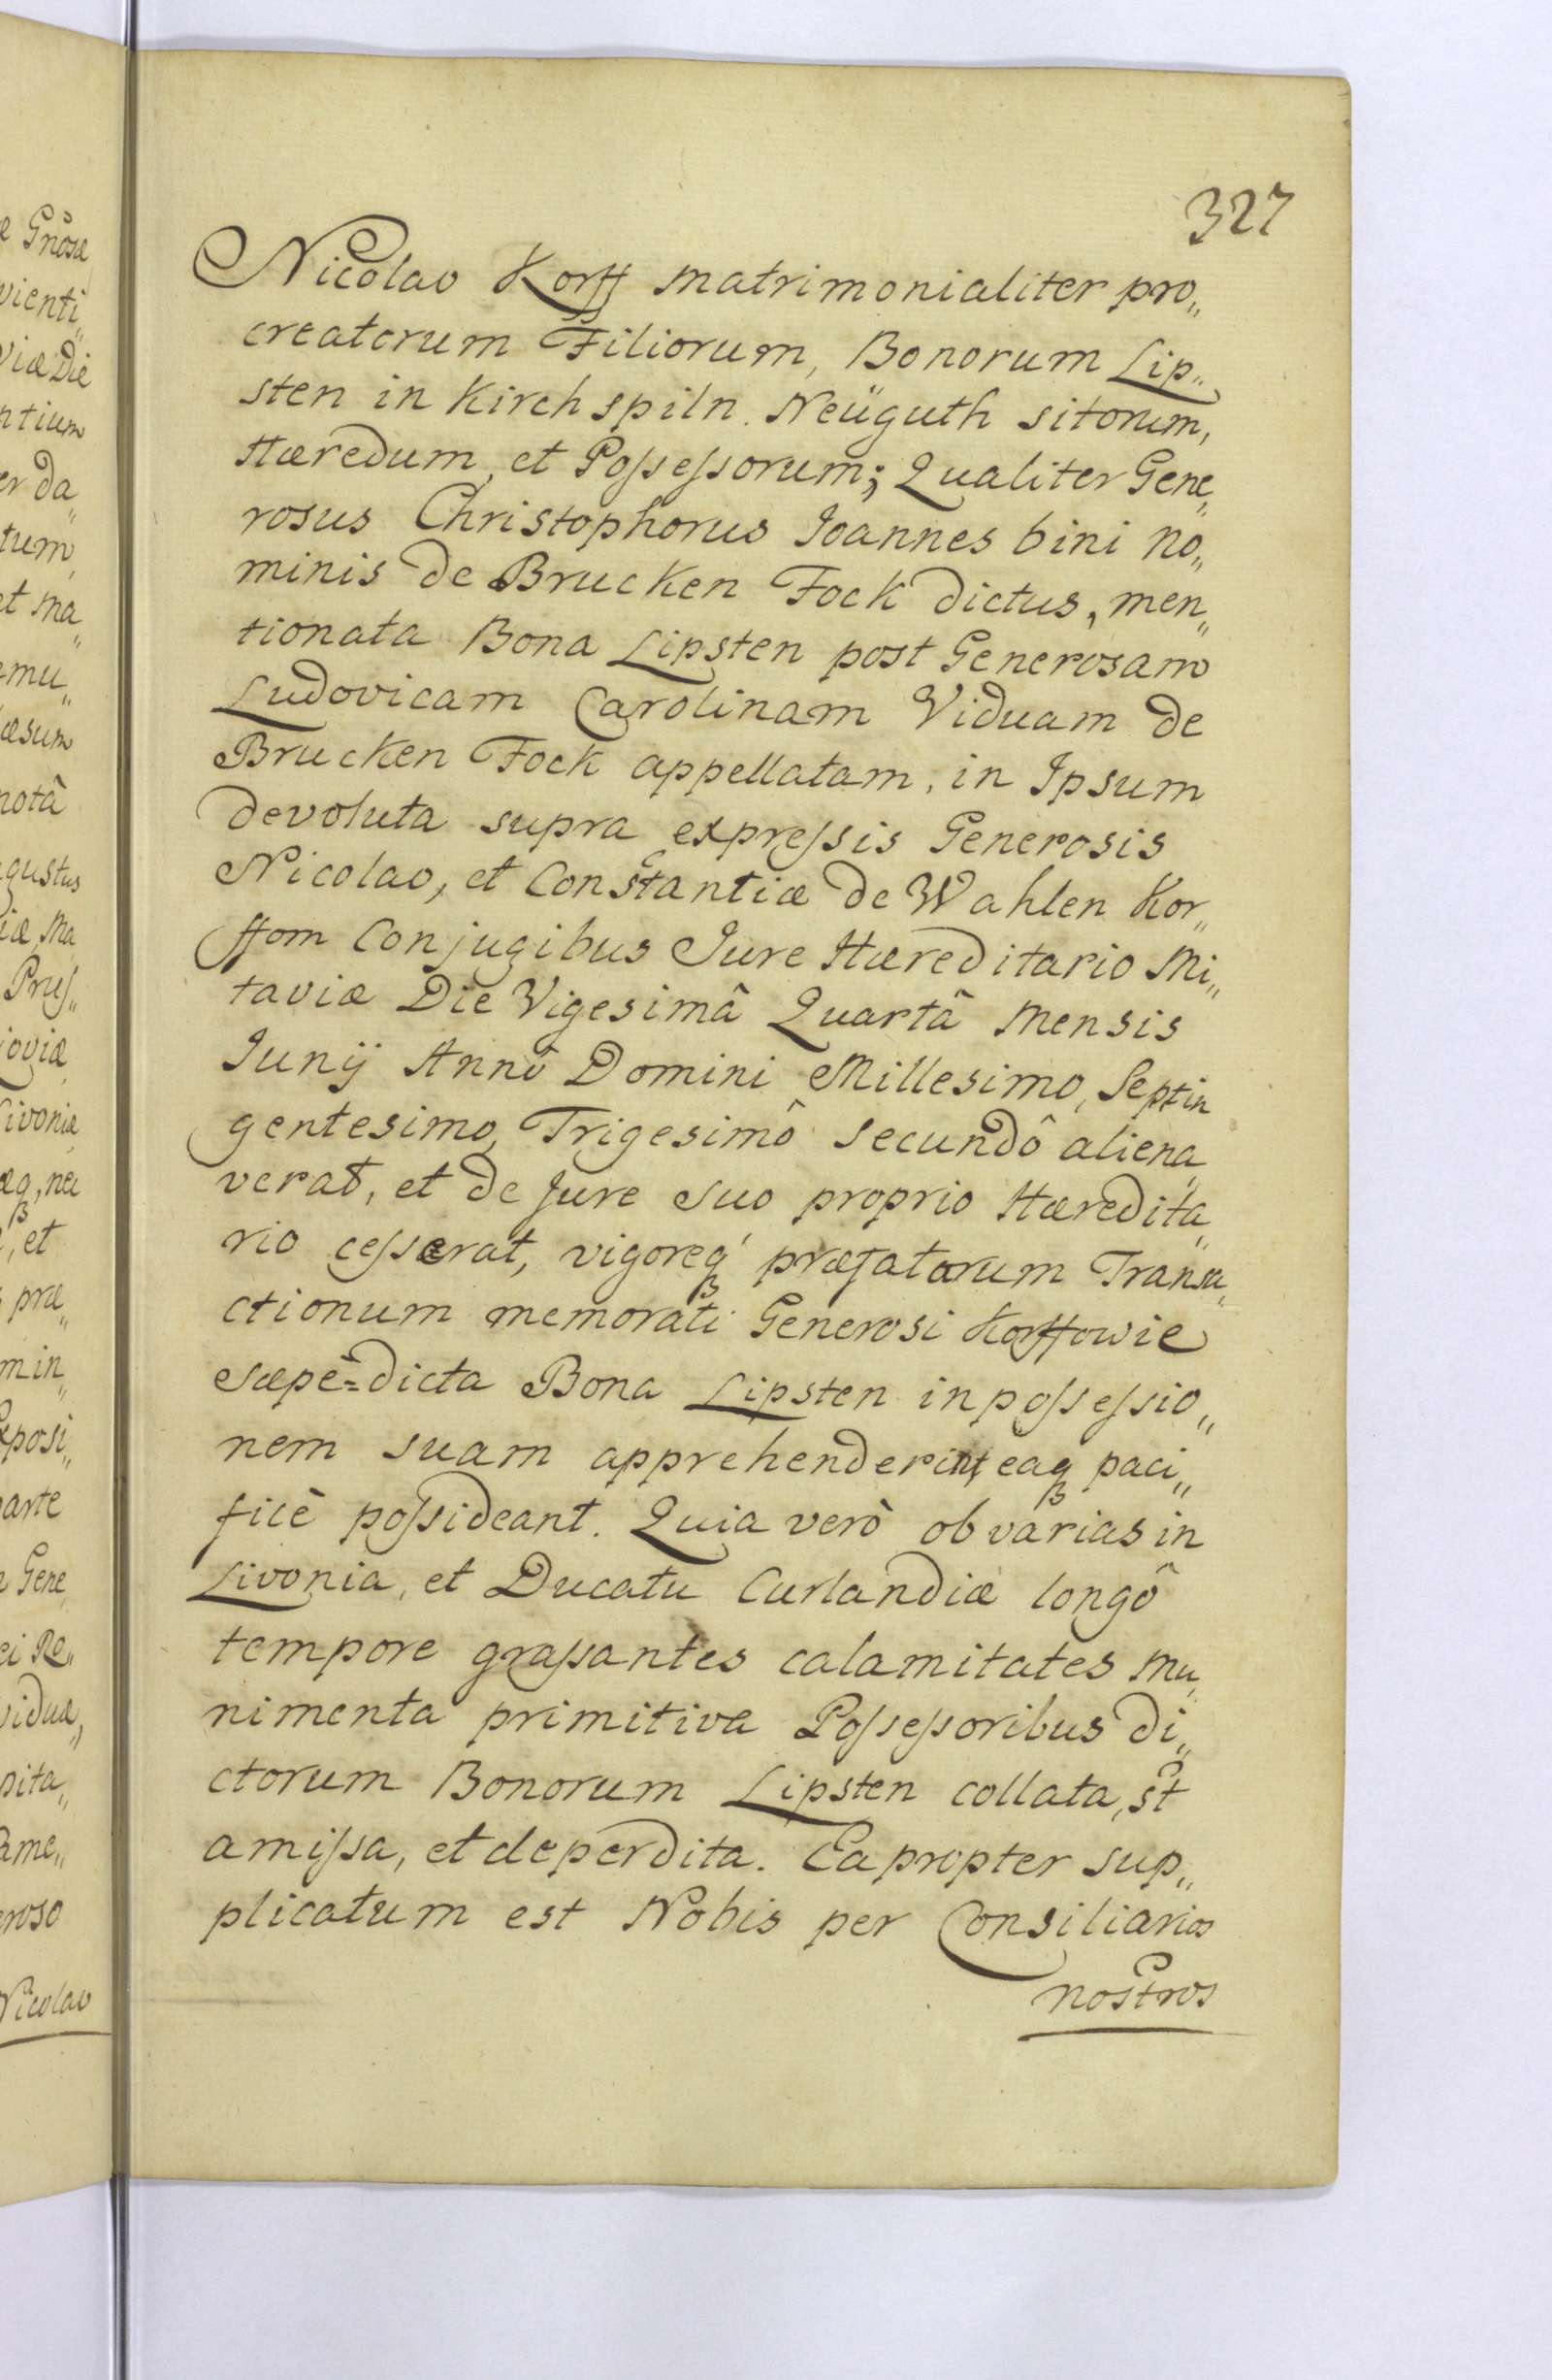 327
Nicolao Korff matrimonialiter pro„
creatorum Filiorum, Bonorum Lip„
sten in Kirchspiln. Neüguth sitorum,
Hæredum, et Possessorum; Qualiter Gene„
rosus Christophorus Joannes bini no„
minis de Brucken Fock dictus, men„
tionata Bona Lipsten post Generosam
Ludovicam Carolinam Viduam de
Brucken Fock appellatam, in Ipsum
devoluta supra expressis Generosis
Nicolao, et Constantiæ de Wahlen Kor„
ffom Conjugibus Jure Hæreditario Mi„
taviæ Die Vigesimâ Quartâ Mensis
Junij Annô Domini Millesimo, Septin
gentesimo, Trigesimô secundô aliena„
verat, et de Jure suo proprio Hæredita„
rio cesserat, vigoreq́ præfatorum Transa„
ctionum memorati Generosi Korffowie
sæpè=dicta Bona Lipsten in possessio„
nem suam apprehenderint, eaq paci„
ficè possideant. Quia verò ob varias in
Livonia, et Ducatu Curlandiæ longô
tempore grassantes calamitates mu„
nimenta primitiva Possessoribus di„
ctorum Bonorum Lipsten collata, st
amissa, et deperdita. Eapropter sup„
plicatum est Nobis per Consiliarios
nostros
e Gnosæ
vienti„
viæ Die
ntium
er da„
tum,
et ma„
emu„
æsum
notâ
gustus
iæ Ma„
Prus„
ioviæ
Livoniæ,
æq, nec
, et
præ„
min„
eposi„
parte
Gene„
ei Re„
viduæ,
pita„
ame„
eroso
Nicolao